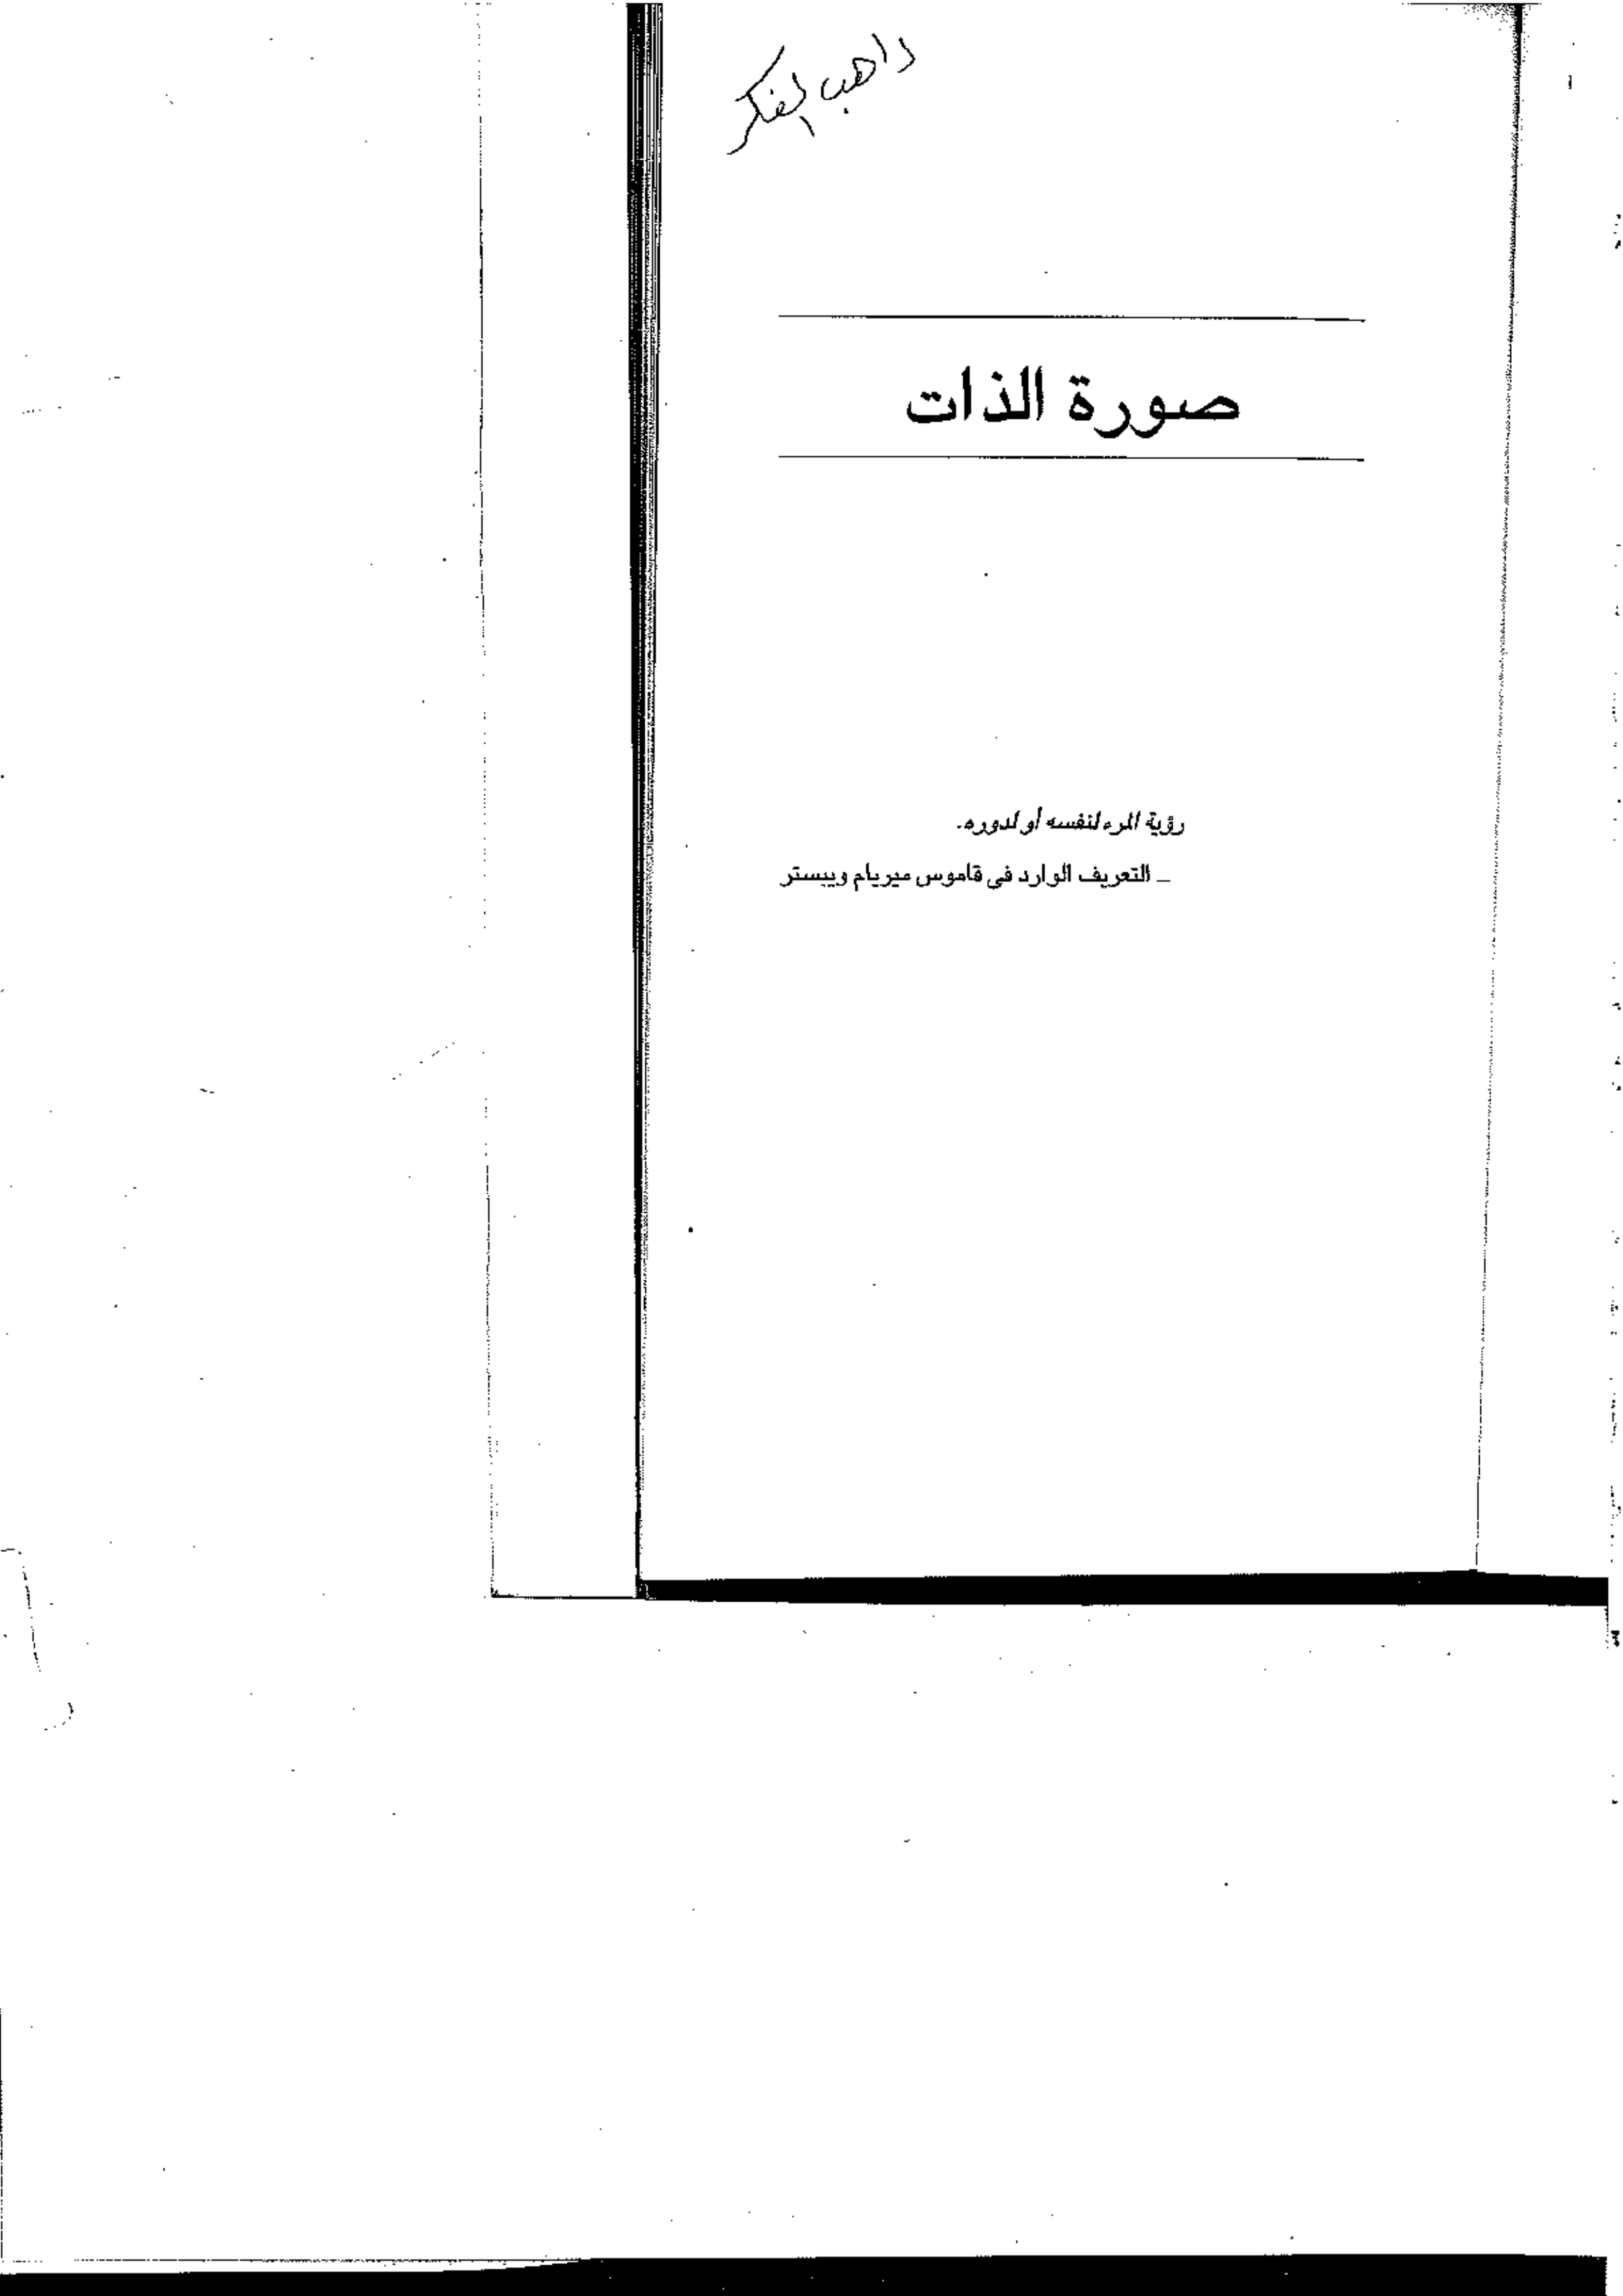 راهب الفكر
صورة الذات
رؤية المرء لنفسه أو لدوره.
_ التعريف الوارد في قاموس ميريام ويبستر